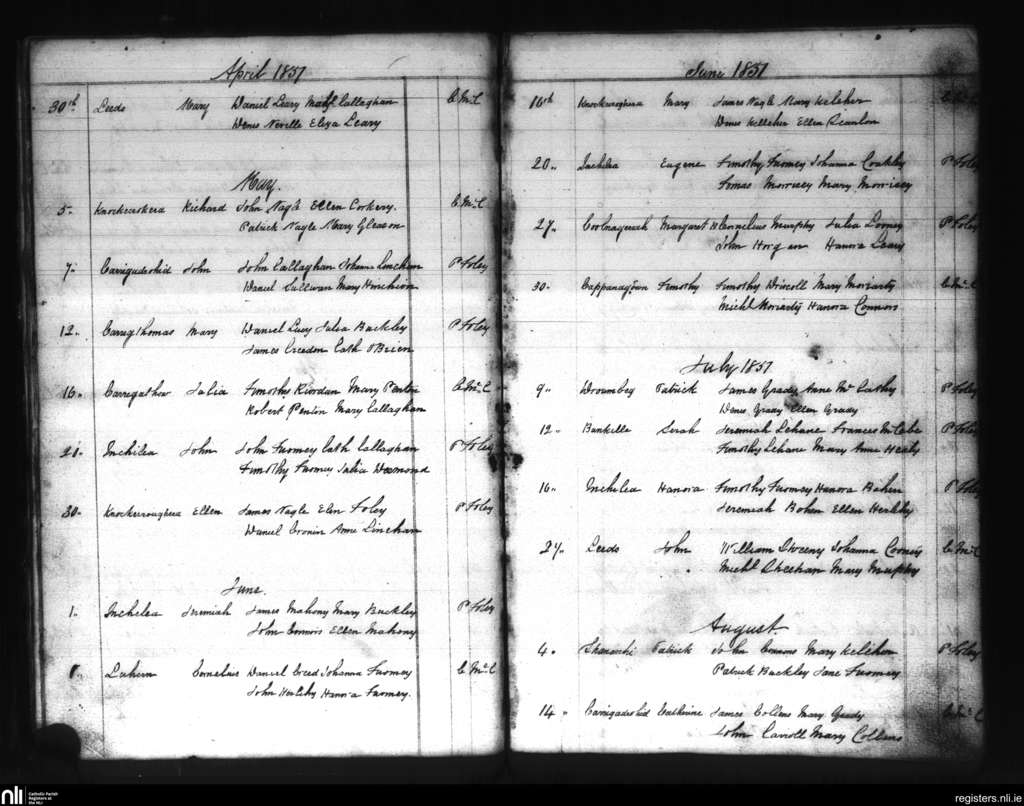 April 1851
30th Leeds Mary Daniel Leary Mary Callaghan C McC
Denis Neville Eliza Leary
May.
5. Richard John Nagle Ellen Corkery. C McC
Patrick Nagle Mary Gleason
7. Carrigadrohid John John Callaghan Johana Linehan P Foley
Daniel Sullivan Mary
12. Carregthomas Mary Daniel Lucy Julia Buckley P Foley
James Creedon Cath O'Brien
16. Julia Timothy Riordan Mary C McC
Robert Mary Callaghan
21. Inchilea John John Twomey Cath Callaghan P Foley
Timothy Twomey Julia Desmond
30. Knockerroughera Ellen James Nagle Elen Foley P Foley
Daniel Cronin Anne Linehan
June.
1. Inchelea Jeremiah James Mahony Mary Buckley P Foley
John Connors Ellen Mahony
Cornelius Daniel Creed Johanna Twomey C McC
John Herlihy Hanora Twomey.
June 1851
16th Mary James Nagle Mary Kelcher
Denis Kelleher Ellen Scanlon
20. Inchlea Eugene Timothy Twomey Johanna Coakley P Foley
Morrisey Mary Morrisey
27. Margaret Cornelius Murphy Julia Looney P Foley
John Horgan Hanora Leary
30. Timothy Timothy Driscoll Mary Moriarty C McC
Michl Moriarty Hanora Connors
July 1851.
9. Patrick James Grady Anne McCarthy P Foley
Denis Grady Ellen Grady
12. Sarah Jeremiah Lehane Frances McCabe P Foley
Timothy Lehane Mary Anne Healy
16. Inchelea Hanora Timothy Twomey Hanora Bohen P Foley
Jeremiah Bohen Ellen Herlihy
27. Leeds John William Sweeny Johanna C McC
Michl Sheehan Mary Murphy
August.
4. Patrick John Connors Mary Kelcher P Foley
Patrick Buckley Jane Twomey
14. Carrigadrohid Catherine James Collens Mary Grady C McC
John Carroll Mary Collens
nli
Catholic Parish
Registers at
the NLI
registers.nli.ie